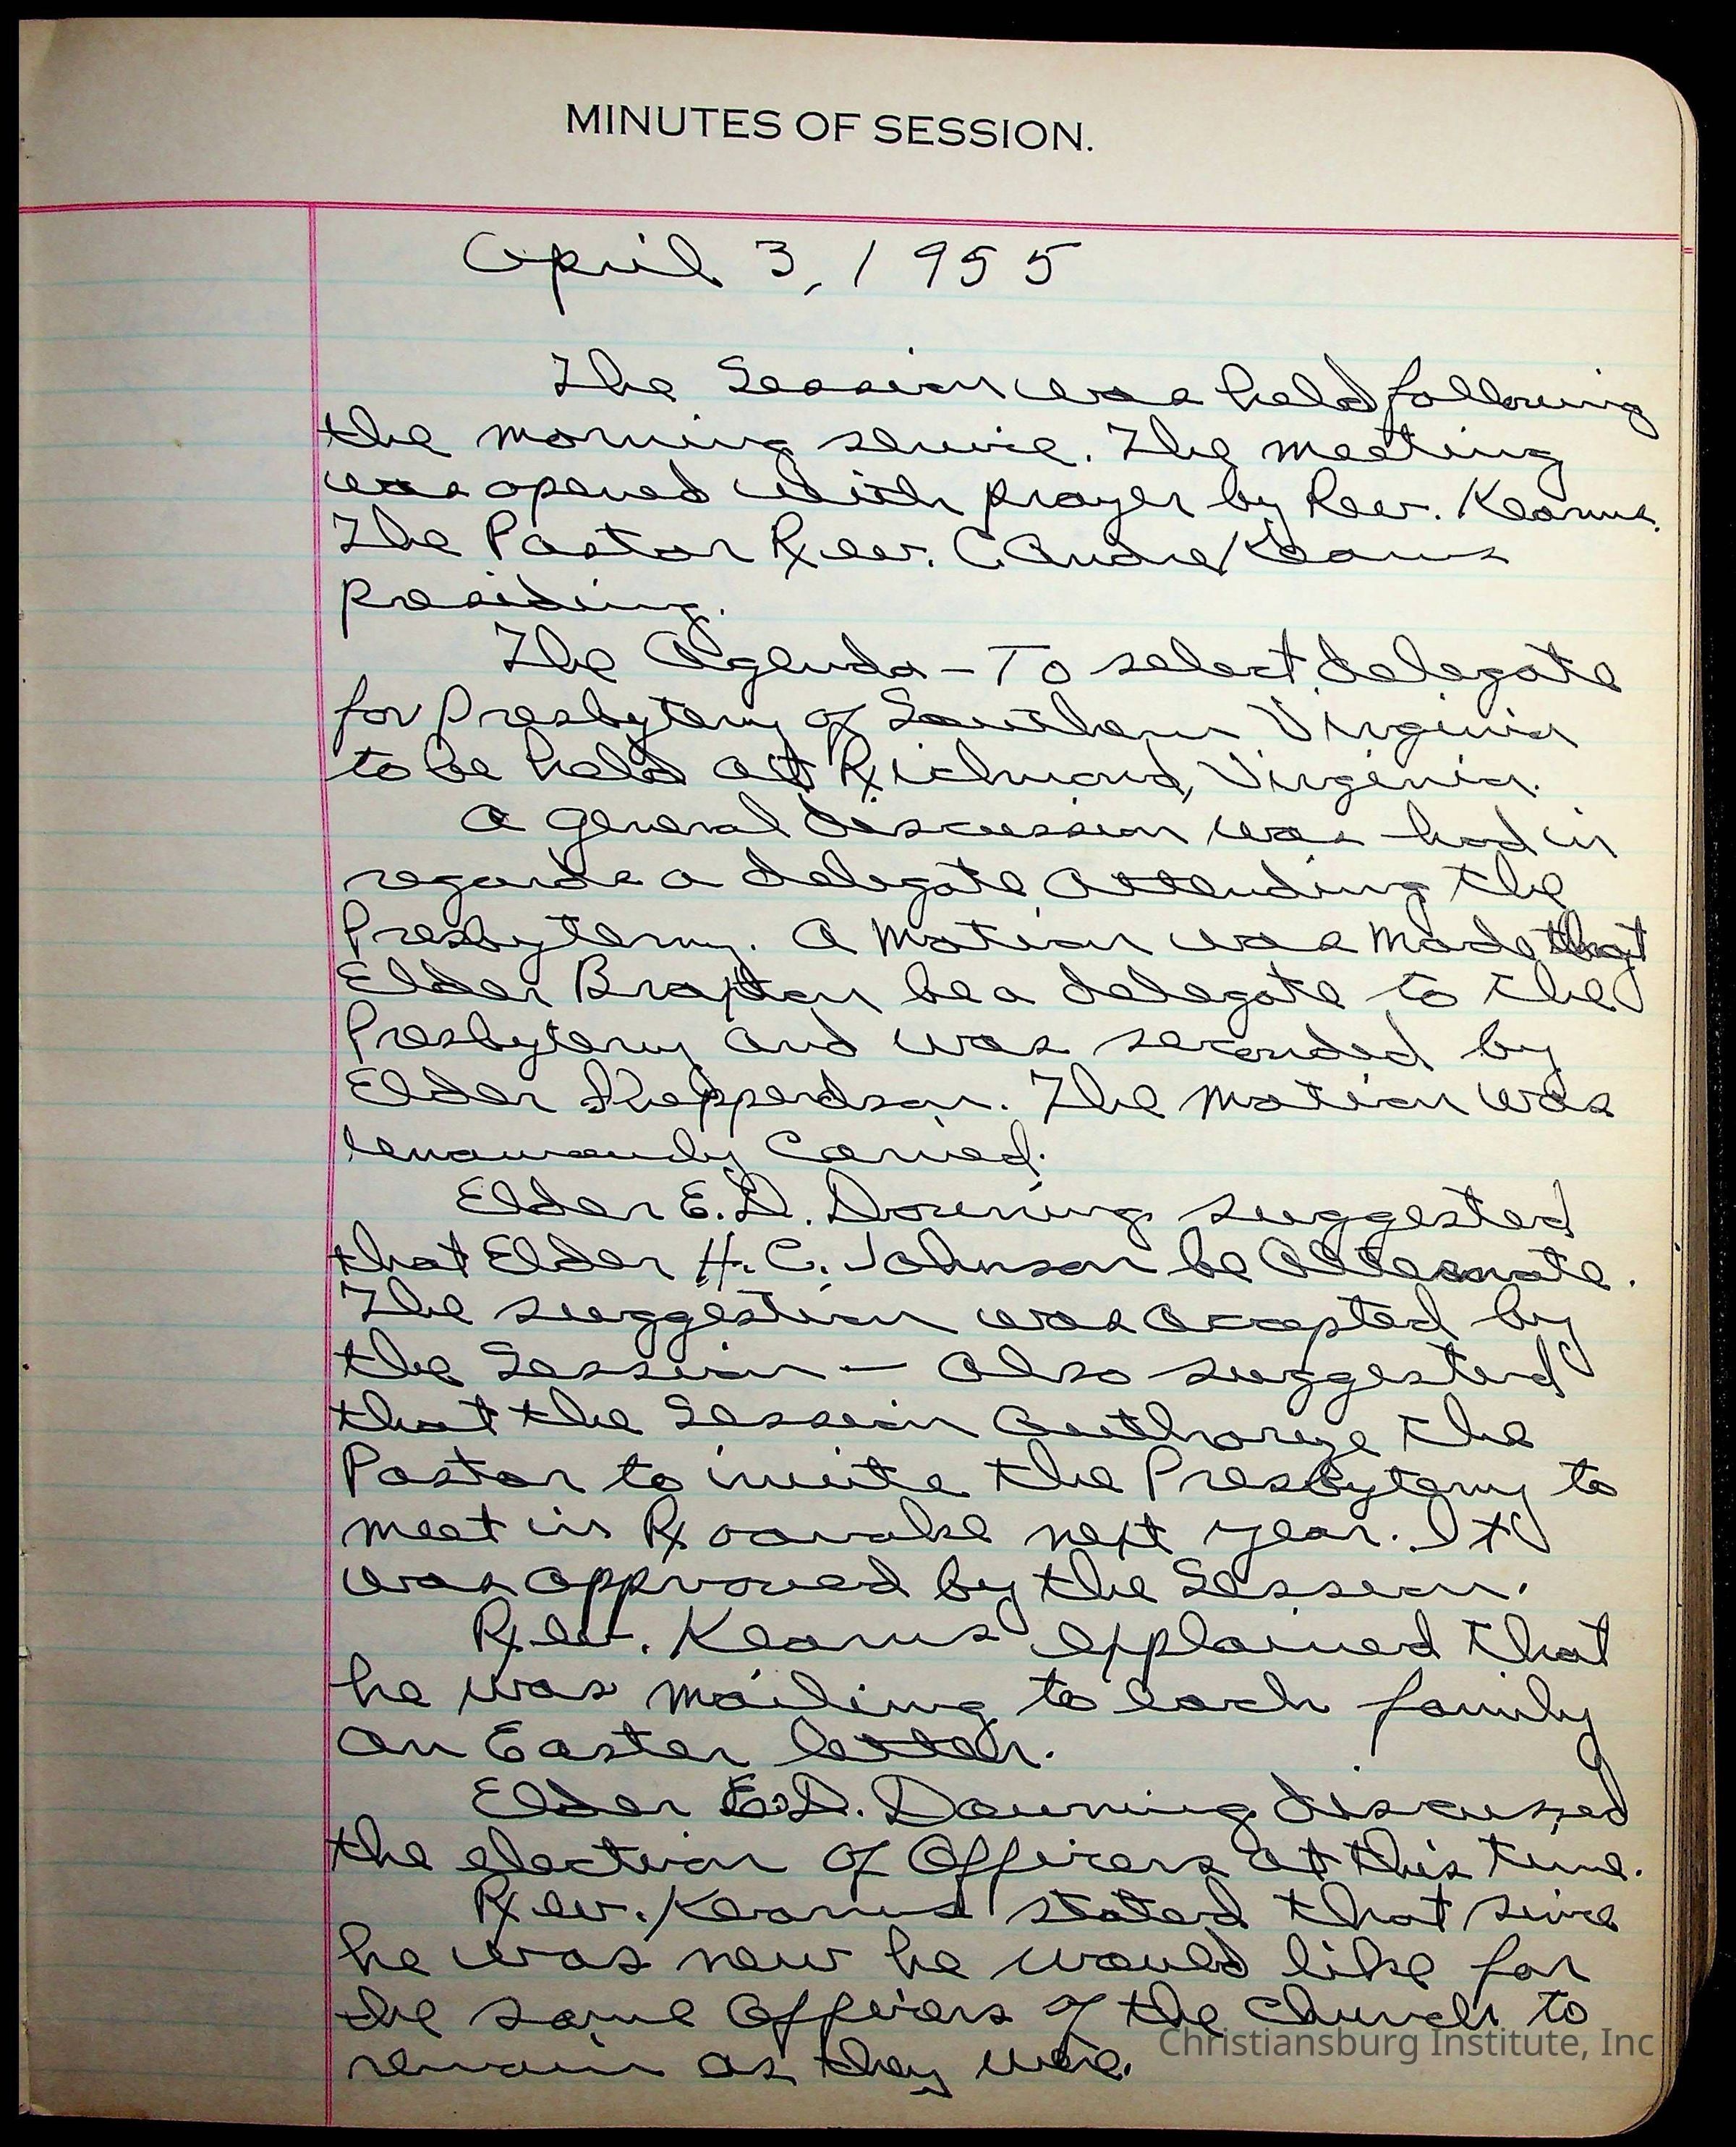 MINUTES OF SESSION.
April 3, 1955
The Session was held following
the morning service. The meeting
was opened with prayer by Rev. Kearns.
The Pastor Rev. C. Andre Kearns
presiding.
The Agenda - To select delegate
for Presbytery of Southern Virginia
to be held at Richmond, Virginia.
A general discussion was had in
regards a delegate attending the
Presbytery. A motion was made that
Elder Braxton be a delegate to the
Presbytery and was seconded by
Elder Shepperdson. The motion was
carried.
Elder E.D. Downing suggested
that Elder H.C. Johnson be Alternate.
The suggestion was accepted by
the Session — Also suggested
that the Session Authorize the
Pastor to invite the Presbytery to
meet in Roanoke next year. It
was approved by the Session.
Rev. Kearns explained that
he was mailing to each family
an Easter letter.
Elder E.D. Downing discussed
the election of Officers at this time.
Rev. Kearns stated that since
he was new he would like for
the same Officers of the Church to
remain as they were.
Christiansburg Institute, Inc